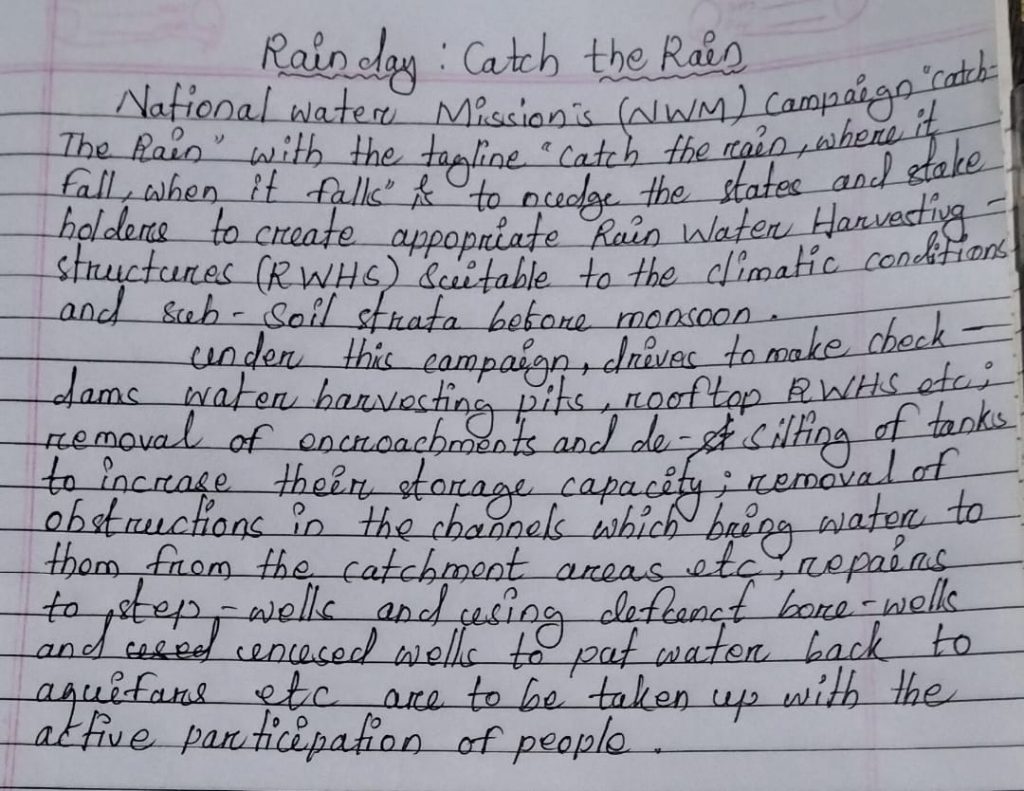 Rain day : Catch the Rain
National Water Mission's (NWM) Campaign "Catch-
The Rain" with the tagline "catch the rain, where it
fall, when it falls" is to nudge the states and stake
holders to create appopriate Rain Water Harvesting -
structures (RWHS) Suitable to the climatic conditions
and sub - Soil strata before monsoon.
under this campaign, drives to make check -
dams water harvesting pits, rooftop RWHS etc;
removal of encroachments and de-st silting of tanks
to increase their storage capacity; removal of
obstructions in the channels which bring water to
them from the catchment areas etc; repairs
to step-wells and using defunct bore-wells
and used unused wells to put water back to
aquifars etc are to be taken up with the
active participation of people.